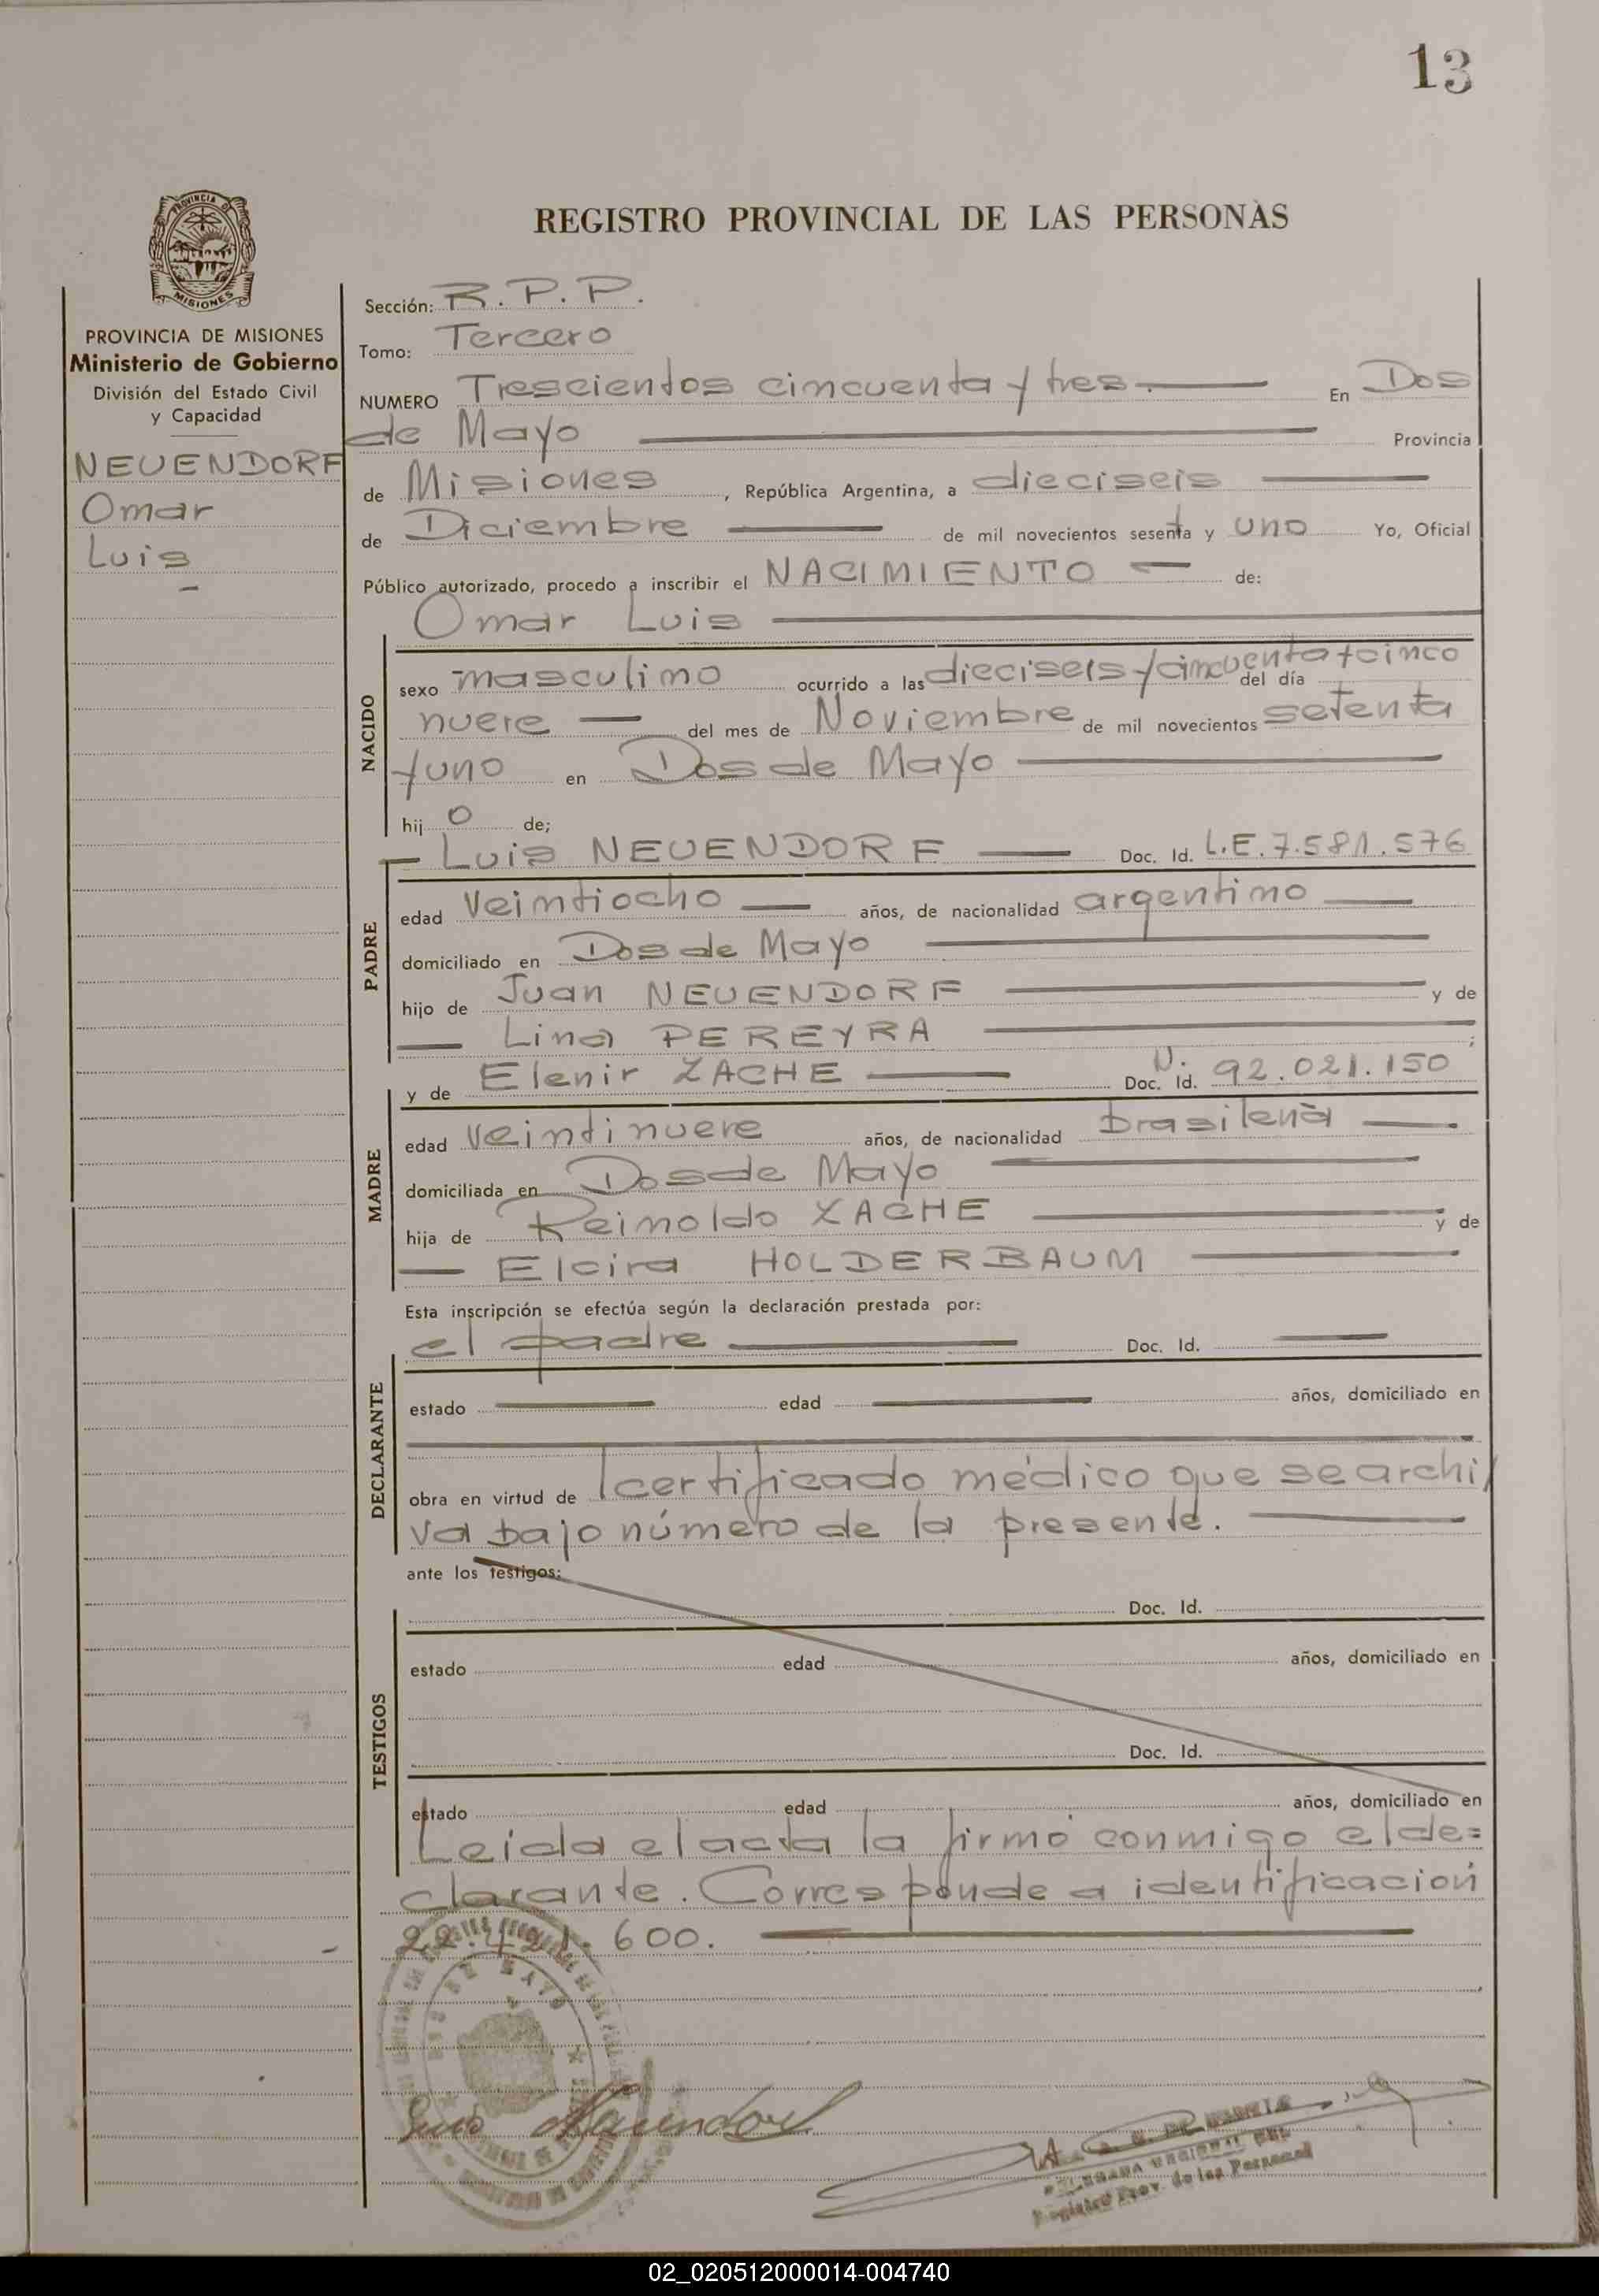 13
PROVINCIA DE
MISIONES
REGISTRO PROVINCIAL DE LAS PERSONAS
PROVINCIA DE MISIONES
Ministerio de Gobierno
División del Estado Civil
y Capacidad
NEUENDORF
Omar
Luis
Sección: R.P.P.
Tomo: Tercero
NUMERO Trescientos cincuenta y tres. En Dos
de Mayo Provincia
de Misiones, República Argentina, a dieciseis
de Diciembre de mil novecientos sesenta y uno Yo, Oficial
Público autorizado, procedo a inscribir el NACIMIENTO de:
Omar Luis
NACIDO
sexo masculino ocurrido a las dieciseis y cincuenta y cinco del día
nueve del mes de Noviembre de mil novecientos setenta
y uno en Dos de Mayo
hijo de;
Luis NEUENDORF Doc. Id. L.E. 7.581.576
PADRE
edad veintiocho años, de nacionalidad argentino
domiciliado en Dos de Mayo
hijo de Juan NEUENDORF y de
Lina PEREYRA ;
y de Elenir ZACHE Doc. Id. N. 92.021.150
MADRE
edad veintinueve años, de nacionalidad brasileña
domiciliada en Dos de Mayo
hija de Reinoldo ZACHE y de
Elcira HOLDERBAUM
Esta inscripción se efectúa según la declaración prestada por:
el padre Doc. Id.
DECLARANTE
estado edad años, domiciliado en
obra en virtud de certificado médico que se archi
va bajo número de la presente.
ante los testigos:
TESTIGOS
Doc. Id.
estado edad años, domiciliado en
Doc. Id.
estado edad años, domiciliado en
Leida el acta la firmó conmigo el de=
clarante. Corresponde a identificación
22.421.600.
DOS DE MAYO
Registro Prov. de las Personas
02_020512000014-004740